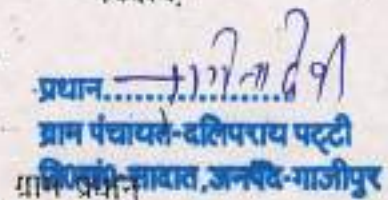 प्रधान.................... देवी
ग्राम पंचायत-दलिपराय पट्टी
सादात ,जनपद-गाजीपुर
ग्राम प्रधान